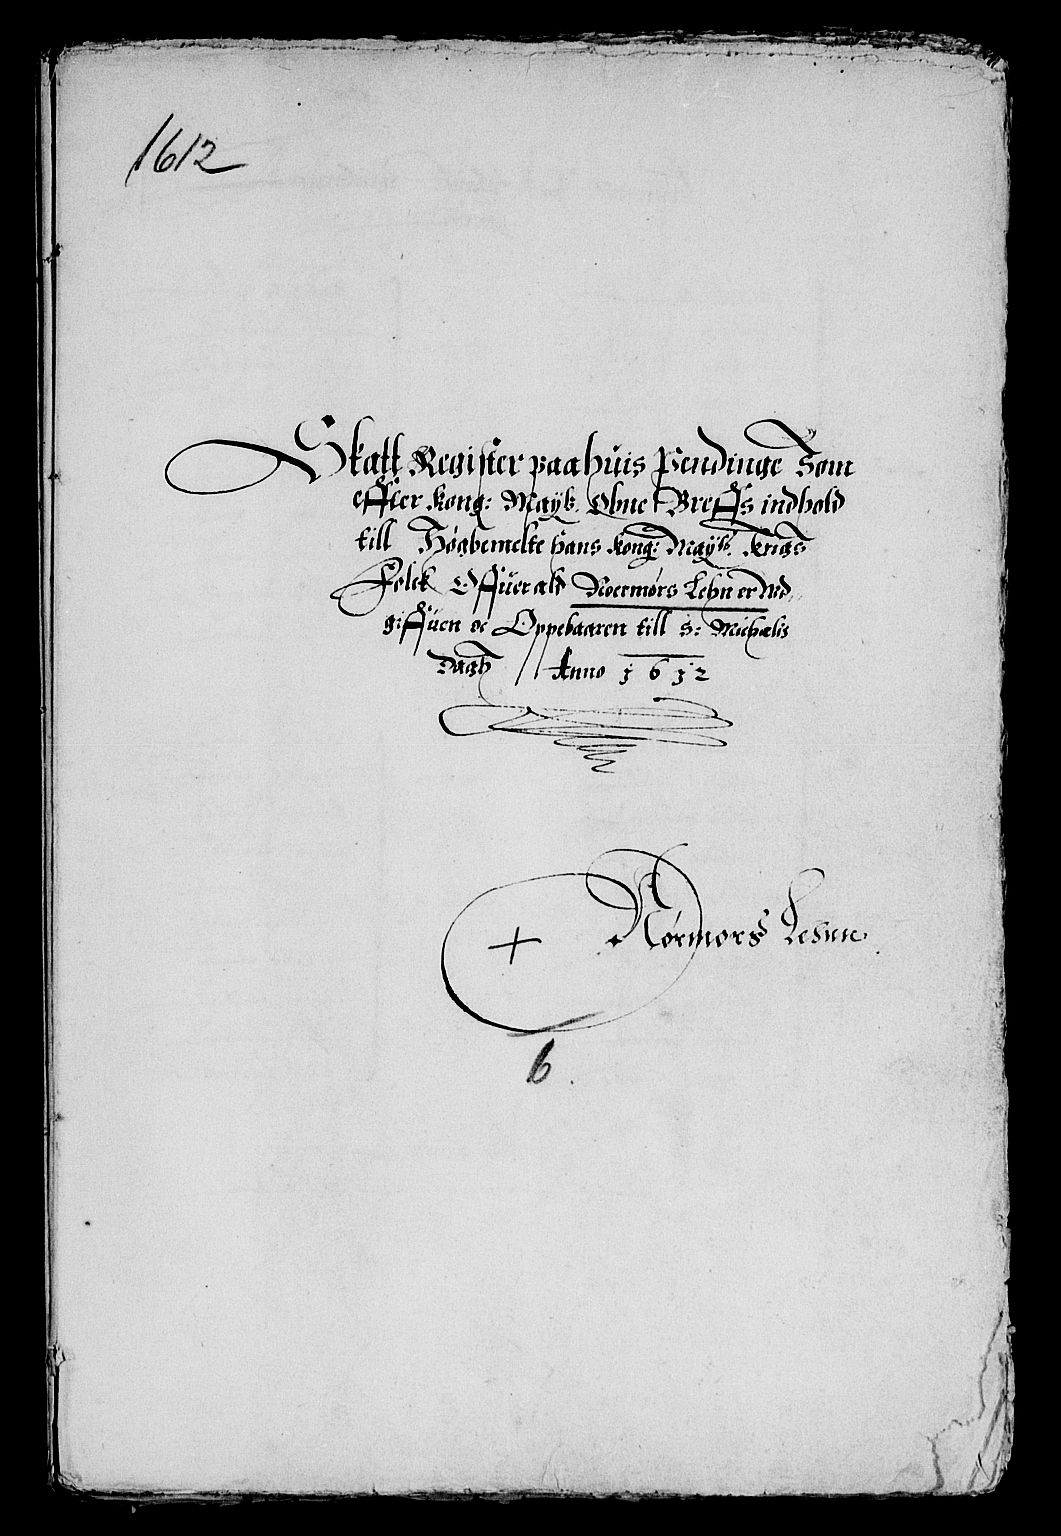 1612
Skatt Register paa huis Pendinge Som
effter Kong: Maytz. Obne Breffs indhold
till Høgbemelte hans Kong: Maytz. Krigs
Folck Offuer alt Noermørs Lehn er Ud
giffuen oc Oppebaaren till S: Michælis
Dagh Anno 1612
Nørmørs Lehnn
+
6